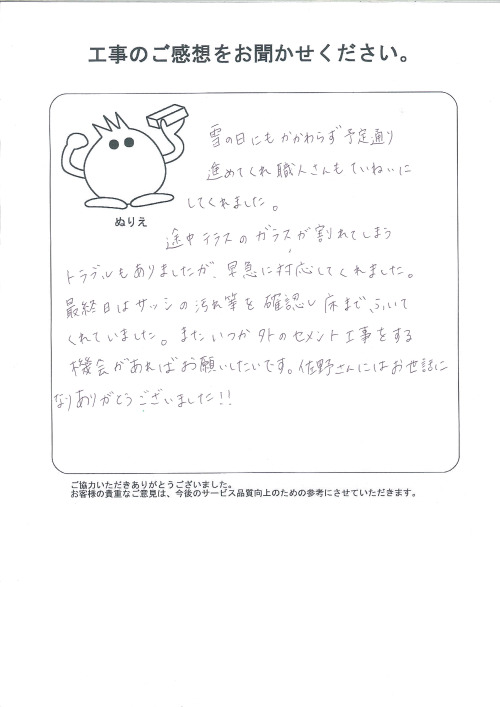 工事のご感想をお聞かせください。
雪の日にもかかわらず予定通り
進めてくれ職人さんもていねいに
してくれました。
ぬりえ
途中テラスのガラスが割れてしまう
トラブルもありましたが、早急に対応してくれました。
最終日はサッシの汚れ等を確認し床まで、ふいて
くれていました。またいつか外のセメント工事をする
機会があればお願いしたいです。佐野さんにはお世話に
なりありがとうございました!!
ご協力いただきありがとうございました。
お客様の貴重なご意見は、今後のサービス品質向上のための参考にさせていただきます。